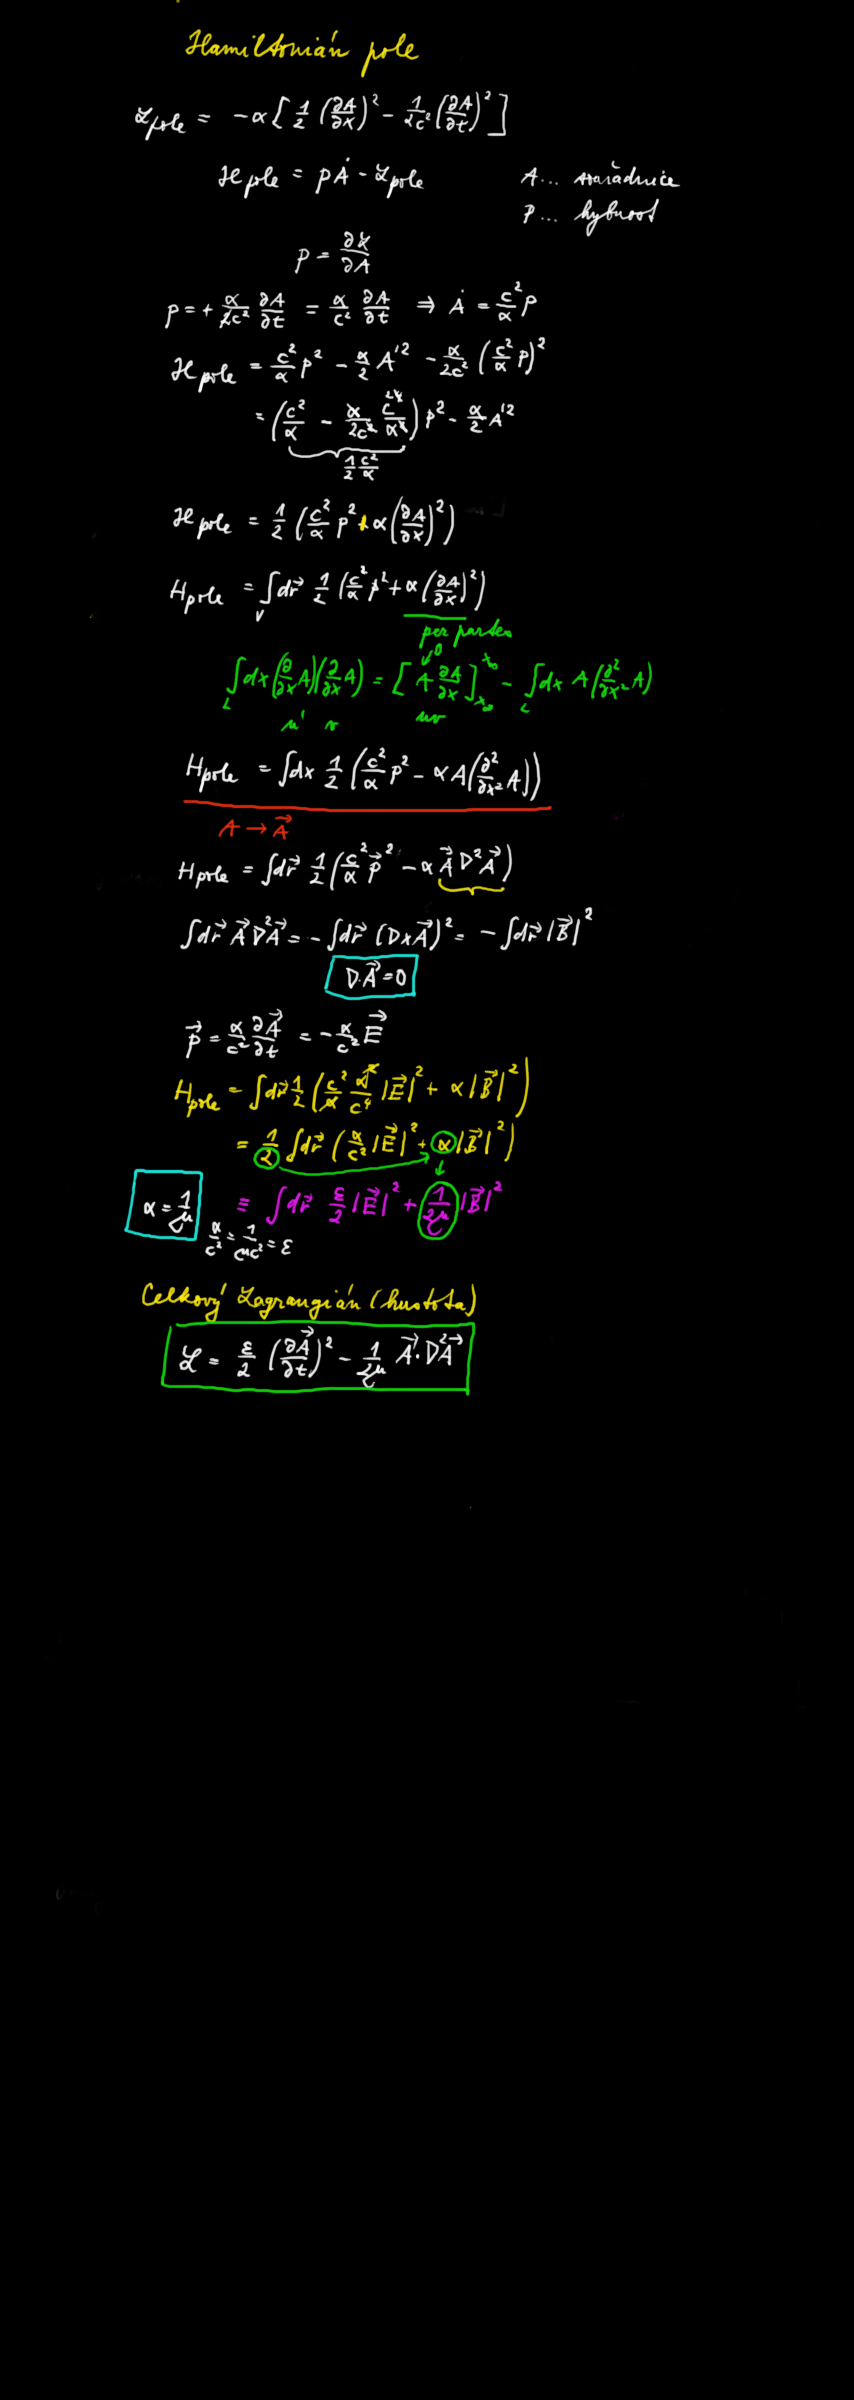 Hamiltonián pole
ℒpole = -α [ 1/2 (∂A/∂x)² - 1/2c² (∂A/∂t)² ]
ℋpole = pȦ - ℒpole
A... souřadnice
P... hybnost
p = ∂ℒ/∂Ȧ
p = + α/2c² ∂A/∂t = α/c² ∂A/∂t ⇒ Ȧ = c²/α p
ℋpole = c²/α p² - α/2 A'² - α/2c² (c²/α p)²
= (c²/α - α/2c² c⁴/α²) p² - α/2 A'²
1/2 c²/α
ℋpole = 1/2 (c²/α p² + α (∂A/∂x)²)
Hpole = ∫V dr⃗ 1/2 (c²/α p² + α (∂A/∂x)²)
per partes
∫L dx (∂/∂x A)(∂/∂x A) = [A ∂A/∂x] - ∫L dx A (∂²/∂x² A)
u' v uv
Hpole = ∫dx 1/2 (c²/α p² - α A (∂²/∂x² A))
A → A⃗
Hpole = ∫dr⃗ 1/2 (c²/α p⃗² - α A⃗ ∇² A⃗)
∫dr⃗ A⃗ ∇² A⃗ = - ∫dr⃗ (∇×A⃗)² = - ∫dr⃗ |B⃗|²
∇·A⃗ = 0
p⃗ = α/c² ∂A⃗/∂t = - α/c² E⃗
Hpole = ∫dr⃗ 1/2 (c²/α α²/c⁴ |E⃗|² + α |B⃗|²)
= 1/2 ∫dr⃗ (α/c² |E⃗|² + α |B⃗|²)
α = 1/μ
≡ ∫dr⃗ ε/2 |E⃗|² + 1/2μ |B⃗|²
α/c² = 1/μc² = ε
Celkový Lagrangián (hustota)
ℒ = ε/2 (∂A⃗/∂t)² - 1/2μ A⃗·∇²A⃗